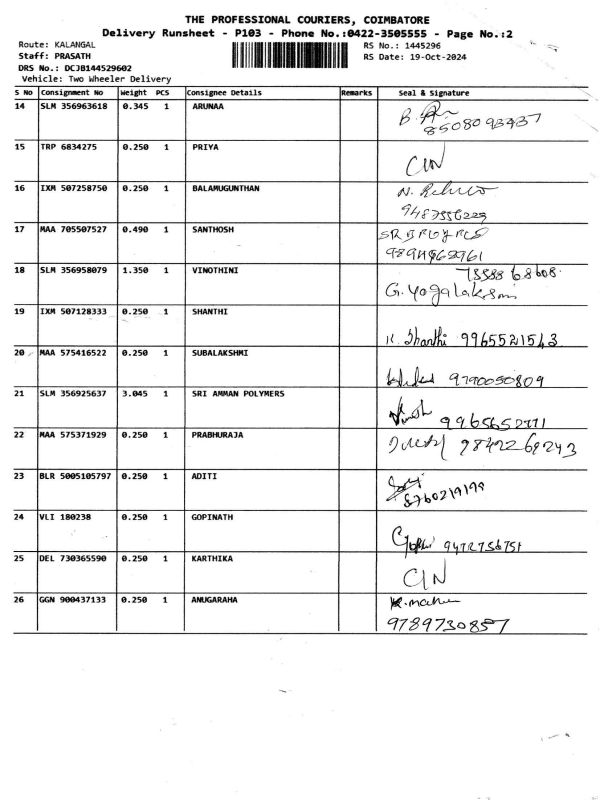 THE PROFESSIONAL COURIERS, COIMBATORE
Delivery Runsheet - P103 - Phone No.:0422-3505555 - Page No.:2
Route: KALANGAL
RS No.: 1445296
Staff: PRASATH
RS Date: 19-Oct-2024
DRS No.: DCJB144529602
Vehicle: Two Wheeler Delivery
S No Consignment No Weight PCS Consignee Details Remarks Seal & Signature
14 SLM 356963618 0.345 1 ARUNAA
B.
8508093437
15 TRP 6834275 0.250 1 PRIYA
CIN
16 IXM 507258750 0.250 1 BALAMUGUNTHAN
N.
9487556229
17 MAA 705507527 0.490 1 SANTHOSH
18 SLM 356958079 1.350 1 VINOTHINI
G. Yogalakshmi
19 IXM 507128333 0.250 1 SHANTHI
K. Shanthi 9965521543
20 MAA 575416522 0.250 1 SUBALAKSHMI
9790050809
21 SLM 356925637 3.045 1 SRI AMMAN POLYMERS
22 MAA 575371929 0.250 1 PRABHURAJA
9842269243
23 BLR 5005105797 0.250 1 ADITI
8760219199
24 VLI 180238 0.250 1 GOPINATH
25 DEL 730365590 0.250 1 KARTHIKA
CIN
26 GGN 900437133 0.250 1 ANUGARAHA
9789730857